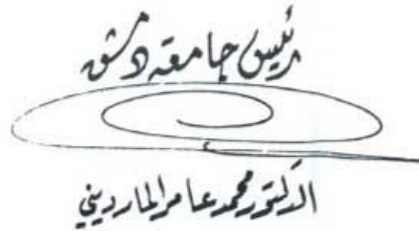 رئيس جامعة دمشق
الدكتور محمد عامر المارديني